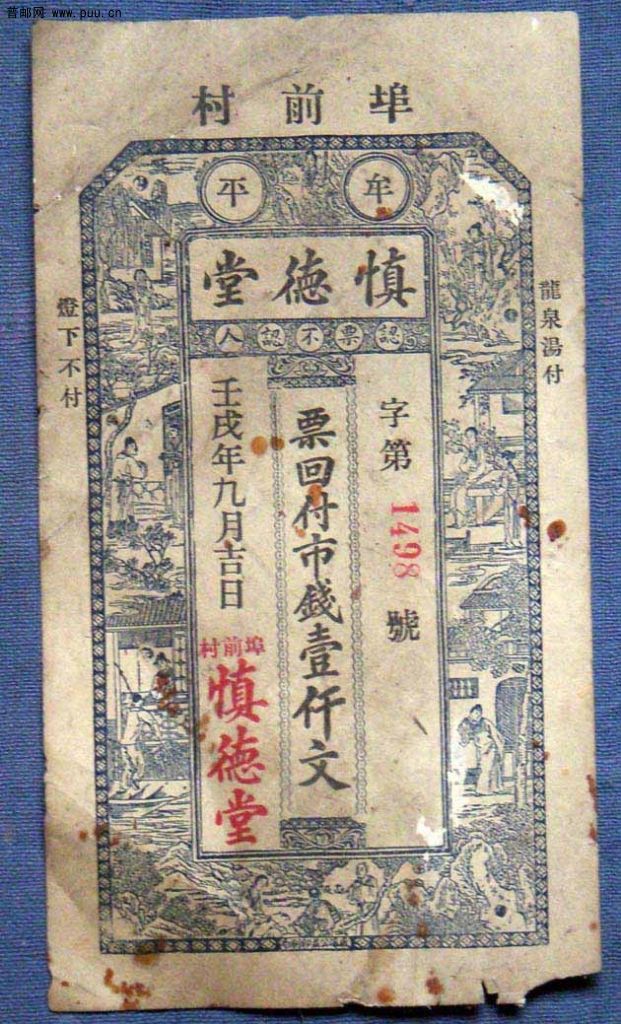 普邮网 www.puu.cn
埠前村
牟平
慎德堂
認票不認人
龍泉湯付
字第1498號
票回付市錢壹仟文
壬戌年九月吉日
埠前村
慎德堂
燈下不付